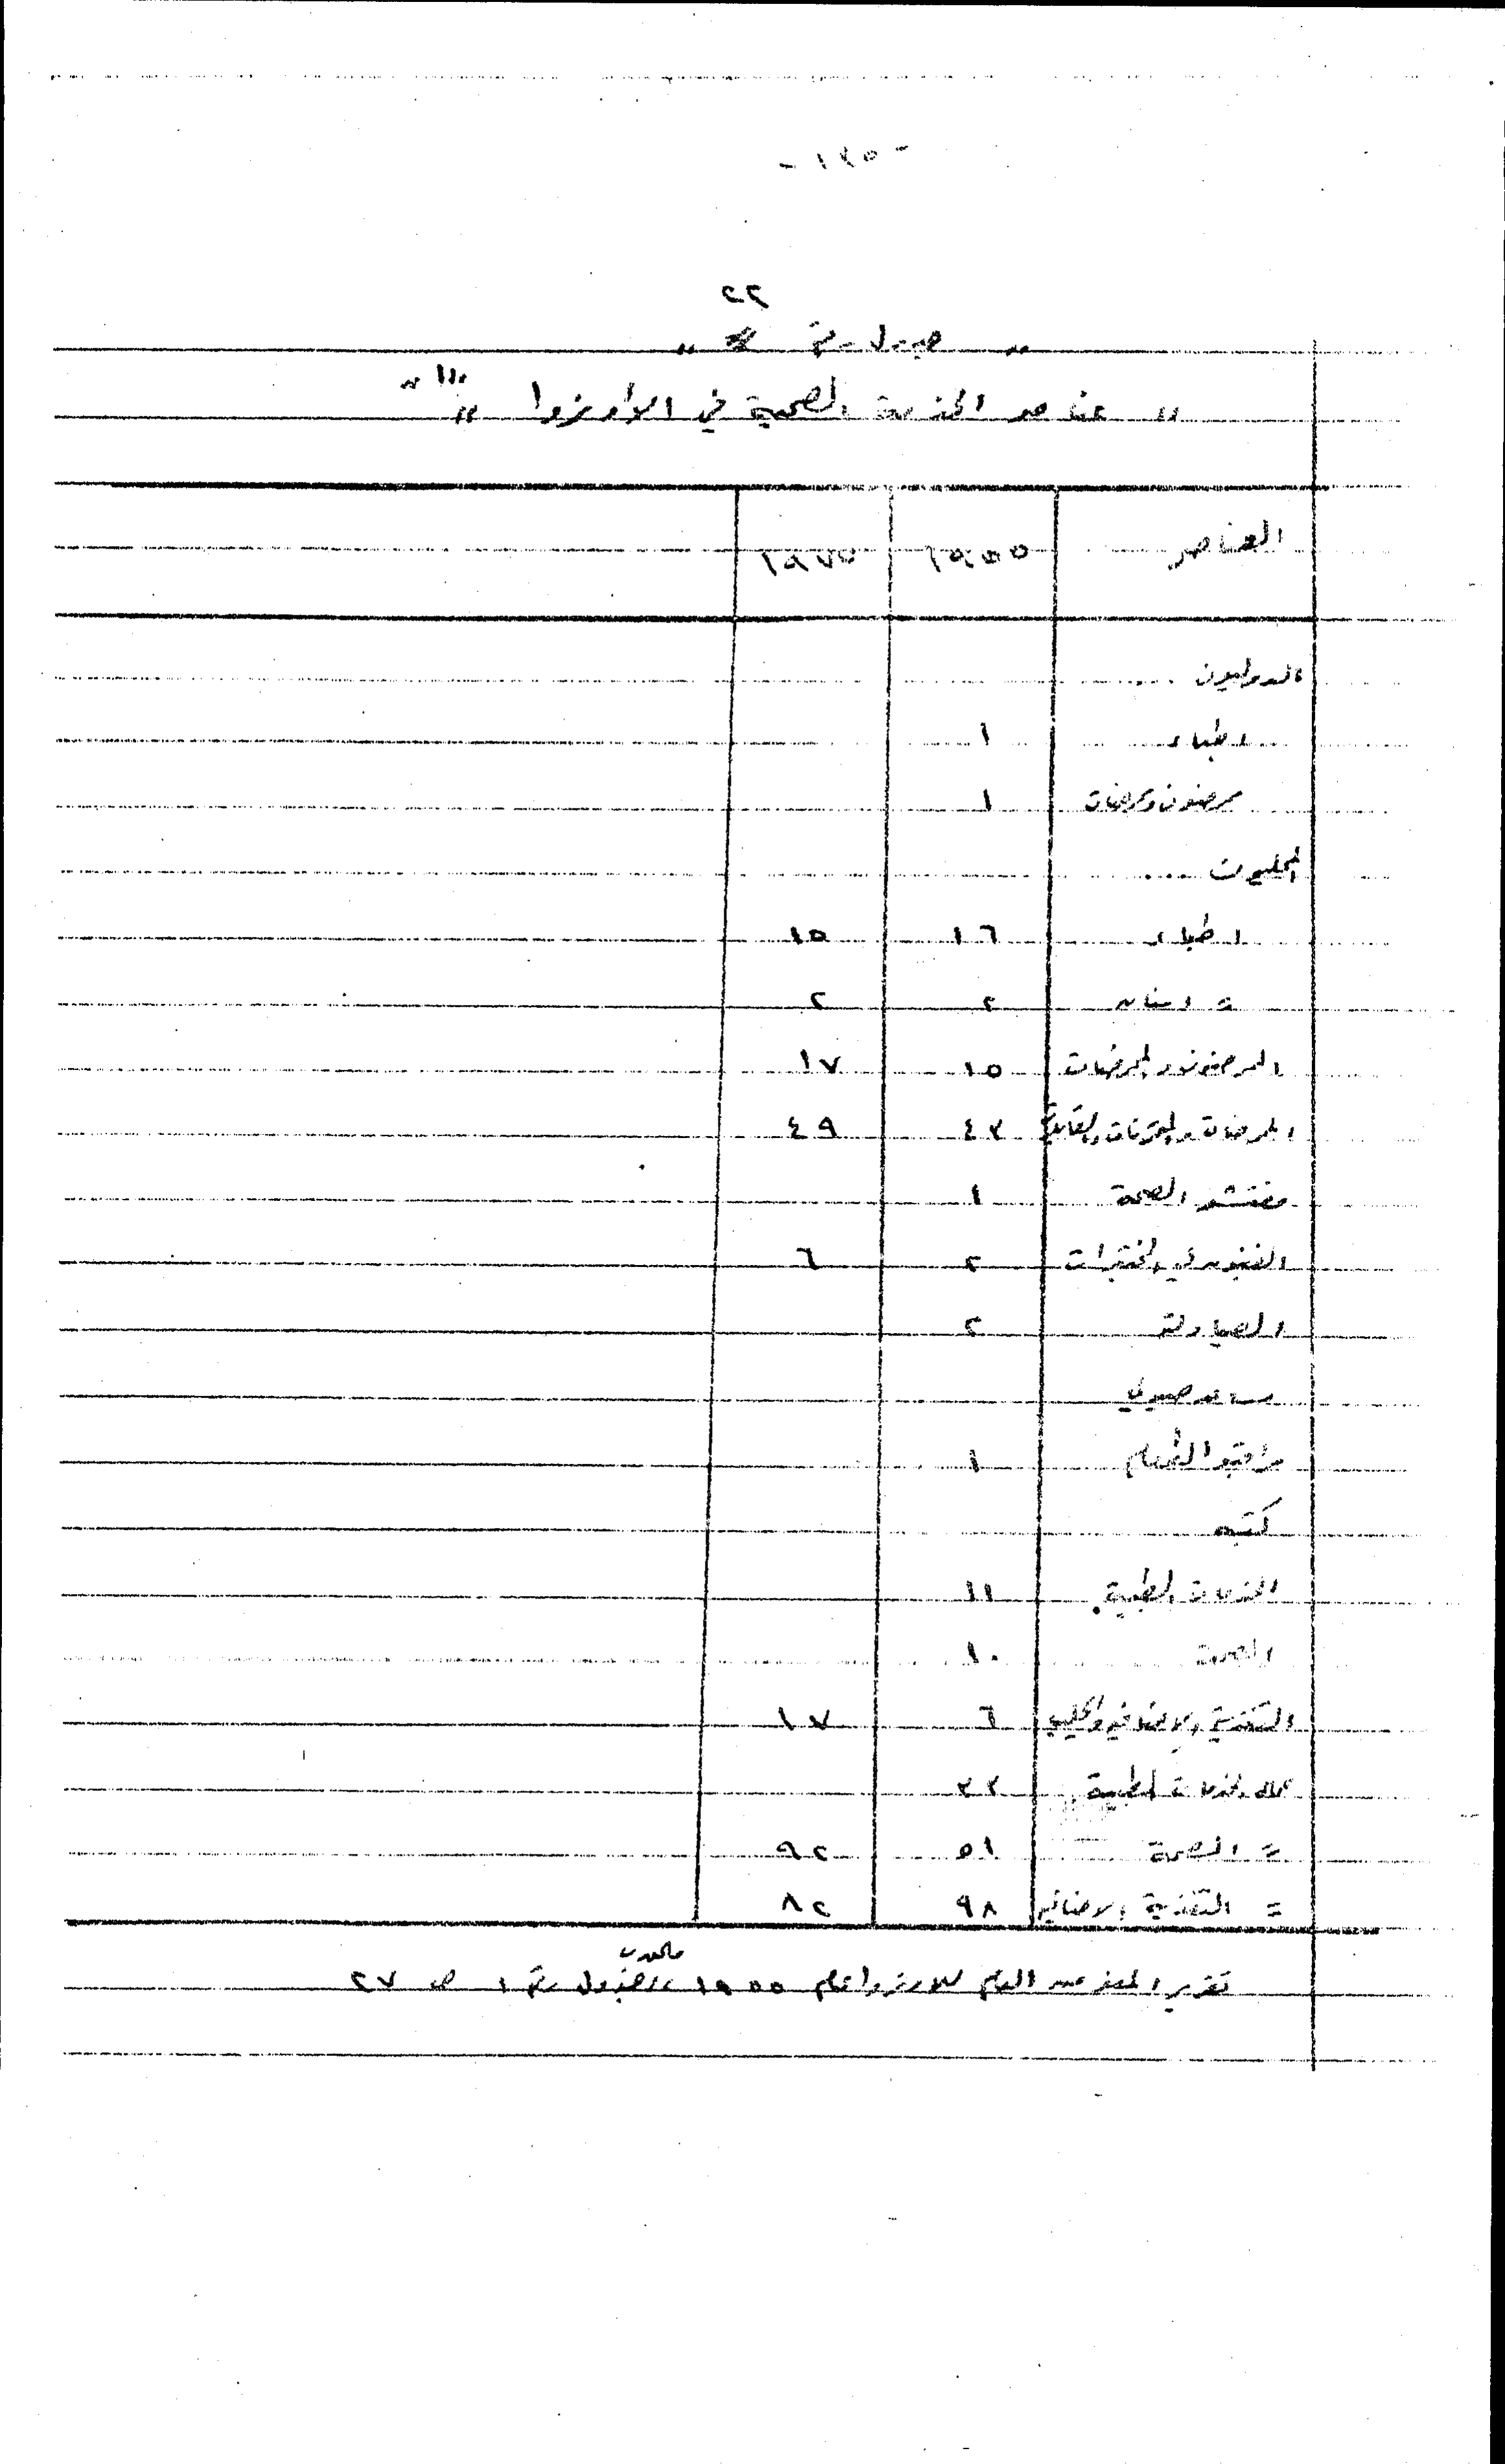 - ١٢٥ -
٢٢
" جدول رقم "
" عناصر الخدمة الصحية في الأونروا " "١"
العناصر ١٩٥٥ ١٩٧٥
الدوليون
اطباء ١
ممرضون وممرضات ١
المحليون
اطباء ١٦ ١٥
= اسنان ٢ ٢
الممرضون والممرضات ١٥ ١٧
الممرضات والتمرنات والقابلات ٤٣ ٤٩
مفتشو الصحة ١
الفنيون في المختبرات ٢ ٦
الصيادلة ٢
مساعد صيدلي
مراقبو الطعام ١
كتبه
الخدمات الطبية ١١
الصحة ١٠
التغذية الاضافية والحليب ٦ ١٧
عمال الخدمات الطبية ٣٢
= الصحة ٥١ ٩٢
= التغذية الاضافية ٩٨ ٨٢
تقرير المفوض العام للاونروا لعام ١٩٥٥ الجدول رقم ١ ص ٢٧